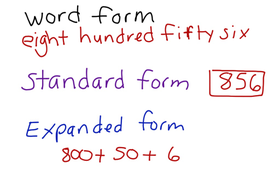 word form
eight hundred fifty six
Standard form 856
Expanded form
800 + 50 + 6